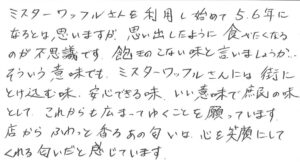 ミスターワッフルさんを利用し始めて5.6年に
なるとは思いますが、思い出したように食べたくなる
のが不思議です。飽きのこない味と言いましょうか…
そういう意味でも、ミスターワッフルさんには街に
とけ込む味、安心できる味、いい意味で庶民の味と
して、これからも広まってゆくことを願っています。
店からふわっと香るあの匂いは、心を笑顔にして
くれる匂いだと感じています。